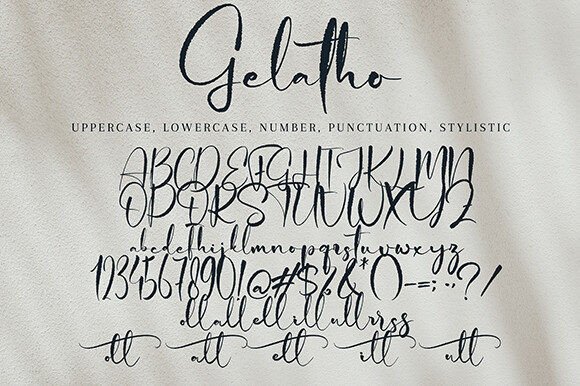 Gelatho
UPPERCASE, LOWERCASE, NUMBER, PUNCTUATION, STYLISTIC
ABCDEFGHIJKLMN
OPQRSTUVWXYZ
abcdefghijklmnopqrstuvwxyz
1234567890!@#$%&*()-=;:.,?/
ollallellillullrrss
oll all ell ill ull